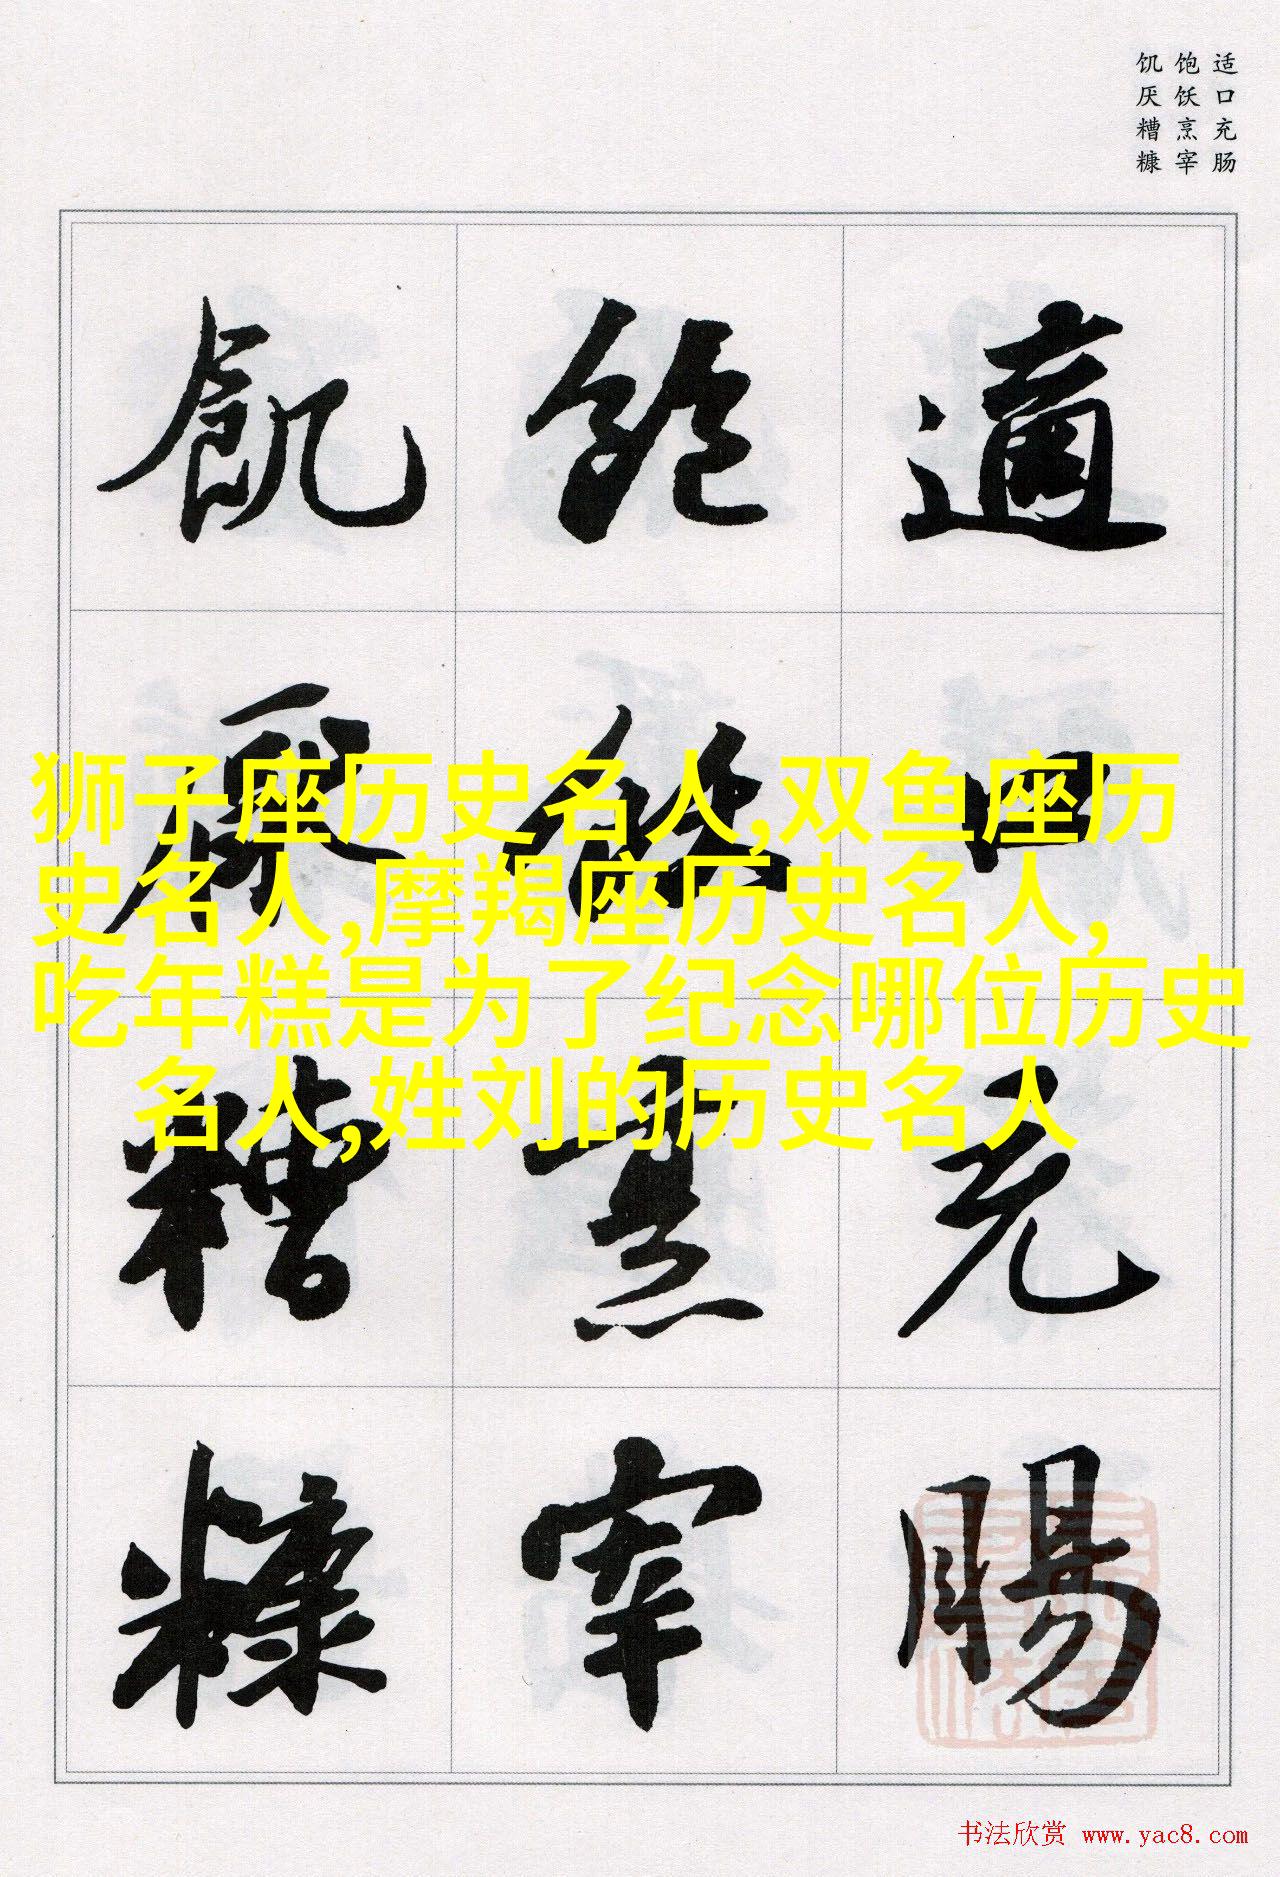 适口充肠
饱饫烹宰
饥厌糟糠
適口充腸
飽飫烹宰
飢厭糟糠
狮子座历史名人,双鱼座历
史名人,摩羯座历史名人,
吃年糕是为了纪念哪位历史
名人,姓刘的历史名人
书法欣赏 www.yac8.com